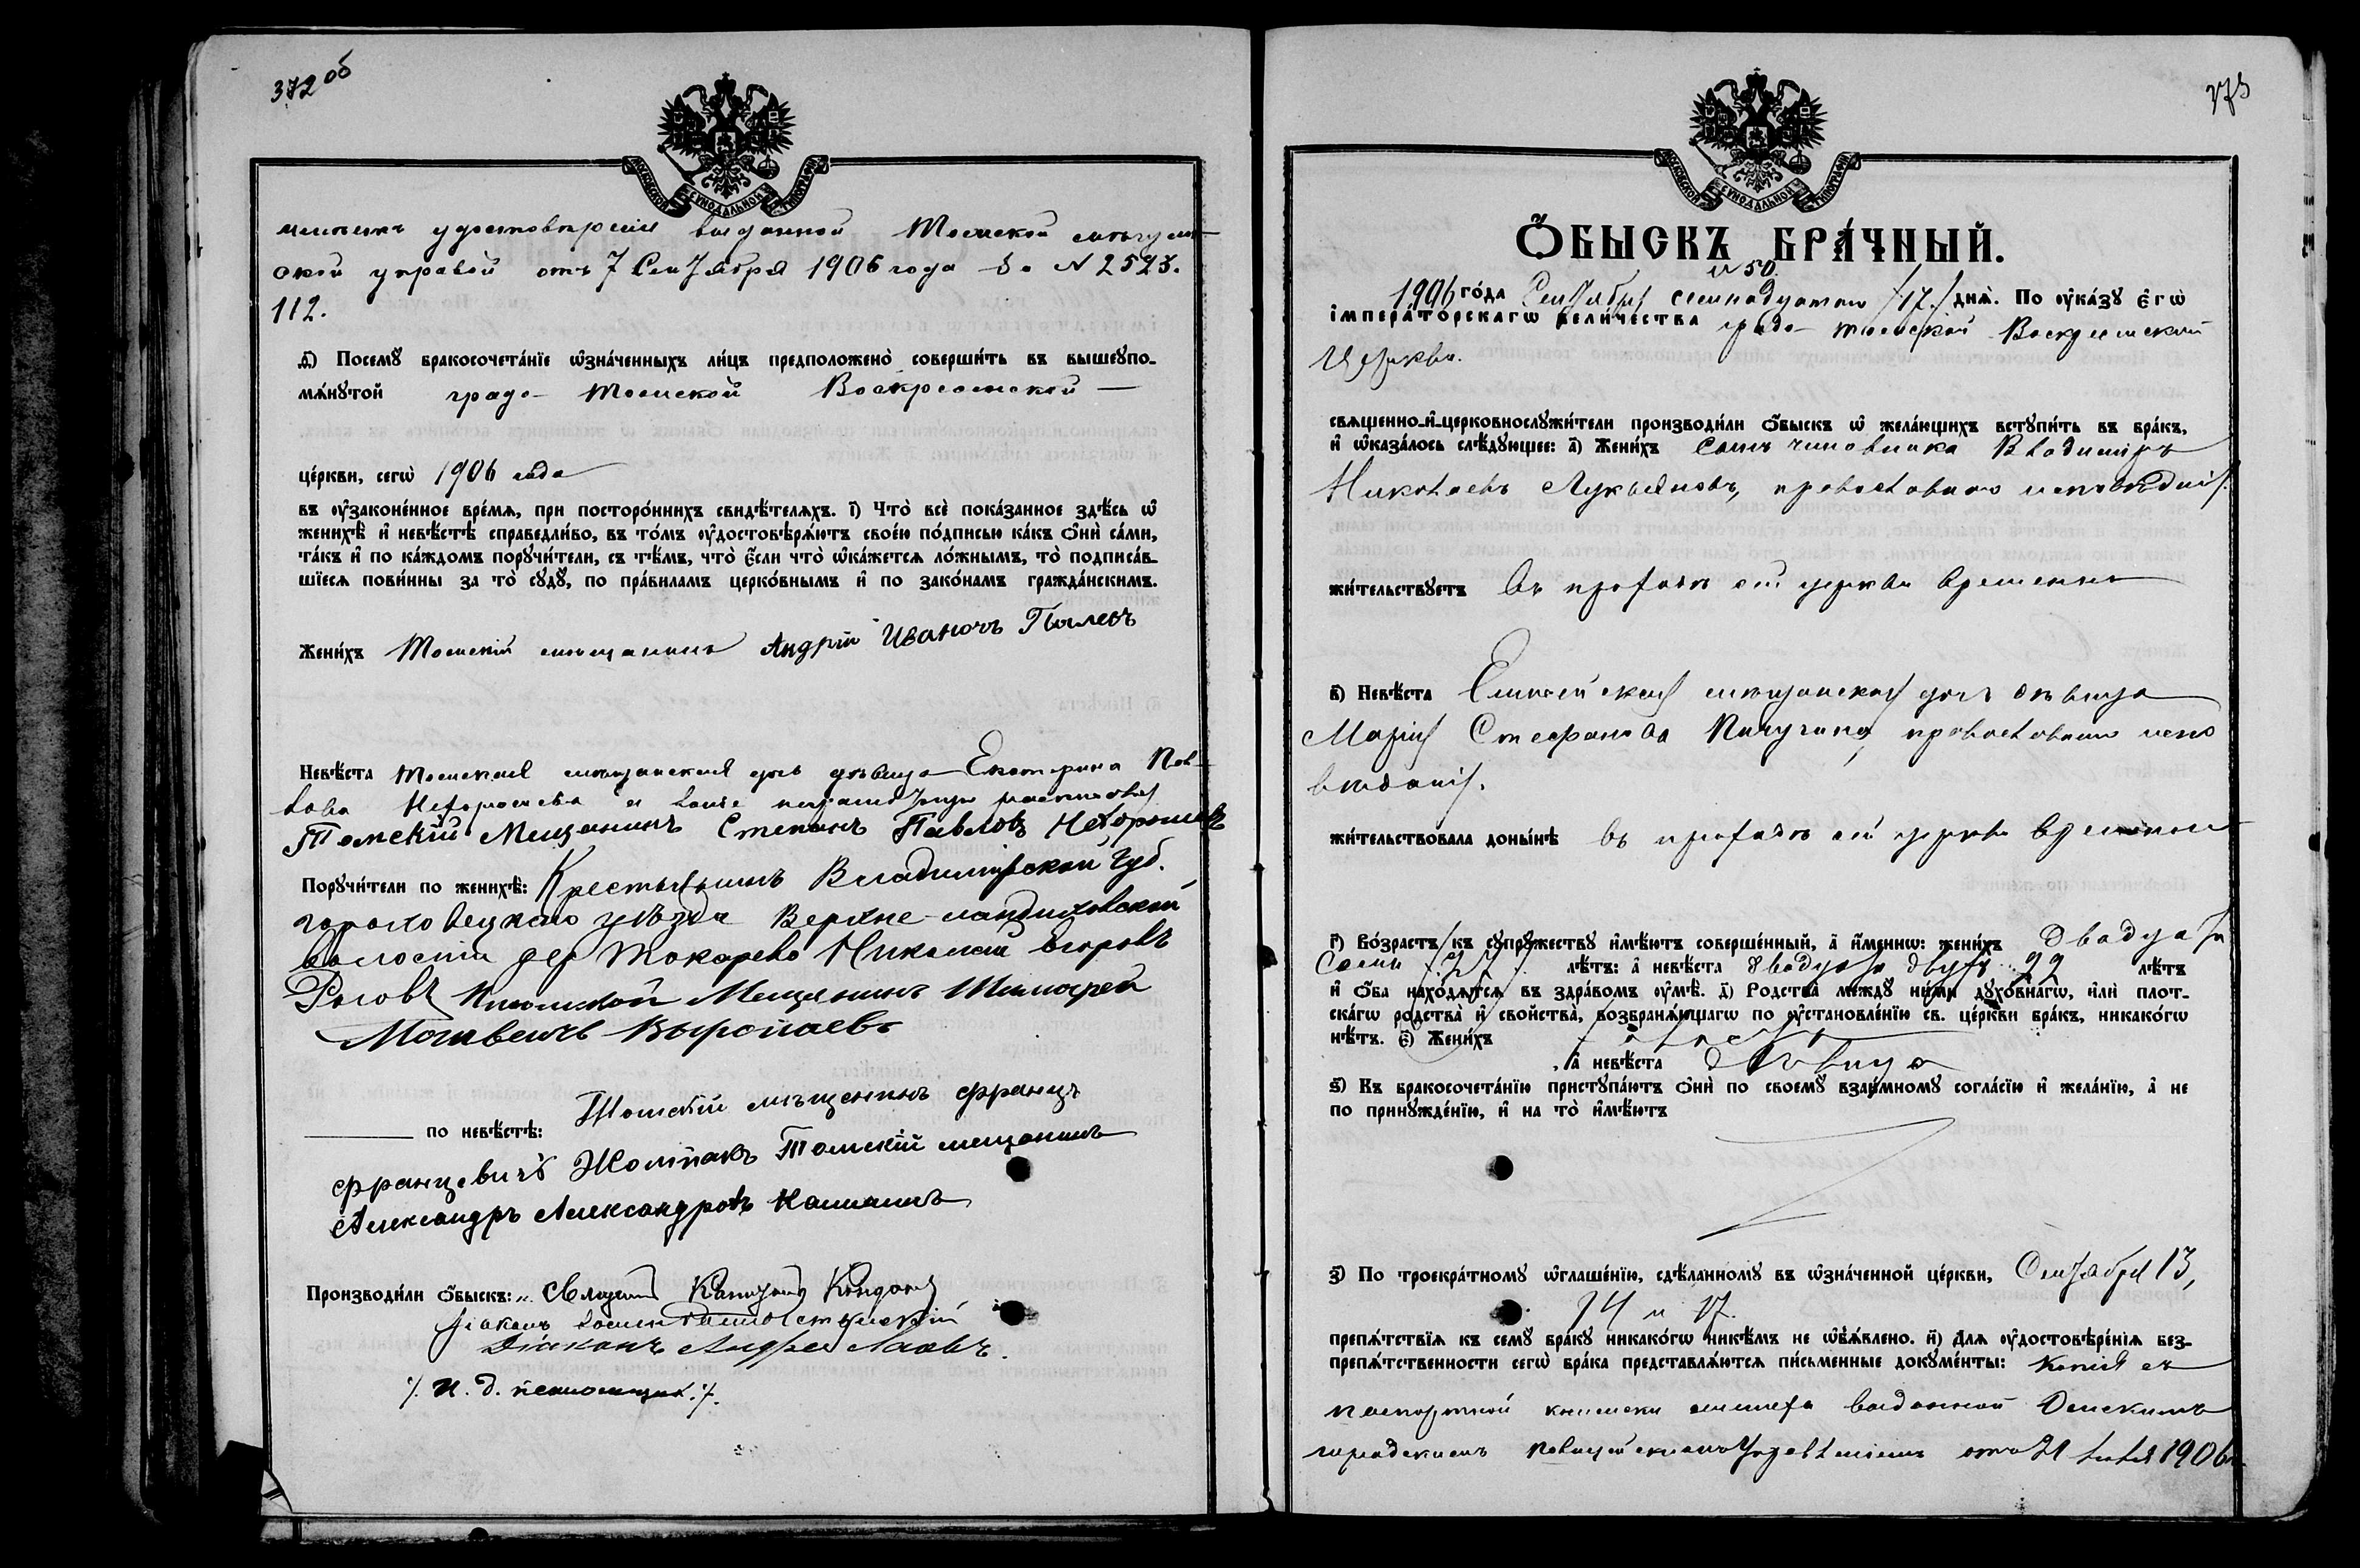 372 об
МОСКОВСКОЙ СѴНОДАЛЬНОЙ ТИПОГРАФІИ
удостовѣреніе выданной Томской мѣщан-
ской управой отъ 7 Сентября 1906 года за № 2523.
112.
д҃) Посемꙋ бракосочета́нїе ѡ҆зна́ченныхъ ли́цъ предположено̀ соверши́ть въ вышеꙋпо-
мѧ́нꙋтой градо-Томской Воскресенской
це́ркви, сегѡ̀ 1906 года
въ ᲂу҆законе́нное вре́мѧ, при посторо́ннихъ свидѣ́телѧхъ. і҃) Что̀ всѐ пока́занное здѣ́сь ѡ҆
женихѣ̀ и҆ невѣ́стѣ справедли́во, въ то́мъ ᲂу҆достовѣрѧ́ютъ свое́ю по́дписью ка́къ ѻ҆нѝ са́ми,
та́къ и҆ по ка́ждомъ порꙋчи́тели, съ тѣ́мъ, что̀ є҆́сли что̀ ѡ҆ка́жетсѧ ло́жнымъ, то̀ подписа́в-
шїесѧ пови́нны за то̀ сꙋдꙋ̀, по пра́виламъ церко́внымъ и҆ по зако́намъ гражда́нскимъ.
Жени́хъ Томскій мѣщанинъ Андрей Иваночъ Пылевъ
Невѣ́ста Томская мѣщанская дочь дѣвица Екатерина Пав-
лова Нехорошева а за нее неграмотную росписался
Томскій Мещанинъ Степанъ Павловъ Нехорошевъ
Порꙋчи́тели по женихѣ̀: Крестьянинъ Владимірской Губ.
гороховецкаго уѣзда Верхне-ландиховской
волости дер Токарево Николай Егоровъ
Роговъ Мещанинъ Тимофей
Матвеичъ Выропаевъ
по невѣ́стѣ: Томскій мѣщенинъ францъ
францевичъ Жолнакъ Томскій мещанинъ
Александръ Александровъ
Производи́ли ѻ҆́быскъ:
Діаконъ
Діаконъ Андрей
/. И. д. псаломщика ./.
373
МОСКОВСКОЙ СѴНОДАЛЬНОЙ ТИПОГРАФІИ
Ѻ҆́БЫСКЪ БРА́ЧНЫЙ.
№ 50.
1906 го́да Сентября семнадцатаго /17./ днѧ̀. По ᲂу҆ка́зꙋ є҆гѡ̀
і҆мпера́торскагѡ вели́чества градо-Томской Воскресенской
Церкви.
свѧщенно-и҆-церковнослꙋжи́тели производи́ли ѻ҆́быскъ ѡ҆ жела́ющихъ встꙋпи́ть въ бра́къ,
и҆ ѡ҆каза́лось слѣ́дꙋющее: а҃) Жени́хъ сынъ чиновника Владиміръ
Николаевъ Лукьяновъ, православнаго исповѣданія.
жи́тельствꙋетъ въ приходѣ сей церкви временно
в҃) Невѣ́ста Енисейская мѣщанская дочь дѣвица
Марія Стефанова Пичугина, православнаго испо
вѣданія.
жи́тельствовала доны́нѣ въ приходѣ сей церкви временно
г҃) Во́зрастъ къ сꙋпрꙋ́жествꙋ и҆мѣ́ютъ соверше́нный, а҆ и҆́менно: жени́хъ двадцати
семи /27./ лѣ́тъ: а҆ невѣ́ста двадцати двухъ 22 лѣ́тъ
и҆ ѻ҆́ба нахо́дѧтсѧ въ здра́вомъ ᲂу҆мѣ̀. д҃) Родства̀ междꙋ̀ ни́ми дꙋхо́внагѡ, и҆лѝ плот-
ска́гѡ родства̀ и҆ сво́йства, возбранѧ́ющагѡ по ᲂу҆становле́нїю св. це́ркви бра́къ, никако́гѡ
нѣ́тъ. є҃) Жени́хъ холостъ
, а҆ невѣ́ста дѣвица
ѕ҃) Къ бракосочета́нїю пристꙋпа́ютъ ѻ҆нѝ по своемꙋ̀ взаи́мномꙋ согла́сїю и҆ жела́нїю, а҆ не
по принꙋжде́нїю, и҆ на то̀ и҆мѣ́ютъ
з҃) По троекра́тномꙋ ѡ҆глаше́нїю, сдѣ́ланномꙋ въ ѡ҆зна́ченной це́ркви, Сентября 13,
14 и 17.
препѧ́тствїѧ къ семꙋ̀ бра́кꙋ никако́гѡ никѣ́мъ не ѡ҆б̾ѧ́влено. и҃) Длѧ ᲂу҆достовѣре́нїѧ без-
препѧ́тственности сегѡ̀ бра́ка представлѧ́ютсѧ пи́сьменные докꙋме́нты: копія съ
паспортной книжки жениха выданной Омскимъ
городскимъ полицейскимъ Управленіемъ отъ 21 1906 г.